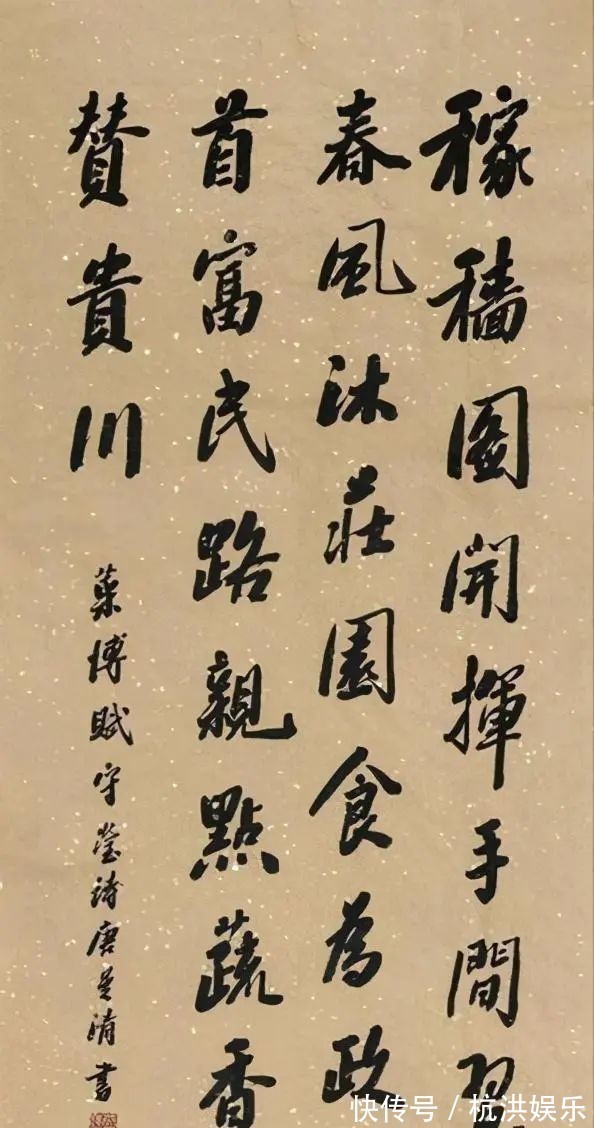 稼穡圖開揮手間習
春風沐莊園食為政
首富民路親點蔬香
贊貴川
菜博賦 守瑩詩 唐曼晴書
快传号 / 杭洪娱乐